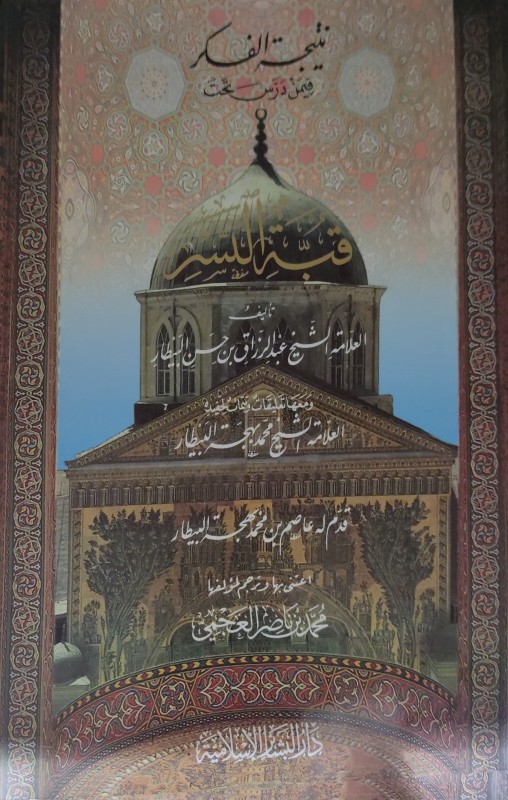 نتيجة الفكر
فيمن درس تحت
قبة النسر
تأليف
العلامة الشيخ عبد الرزاق بن حسن البيطار
ومعها تعليقات وذيل لحفيده
العلامة الشيخ محمد بهجة البيطار
قدم له عاصم بن محمد بهجة البيطار
اعتنى بها وترجم لمؤلفها
محمد بن ناصر العجمي
دار البشائر الإسلامية